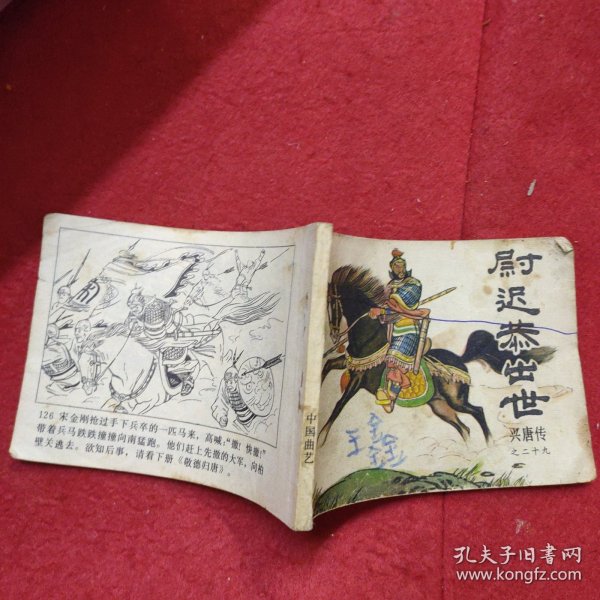 尉迟恭出世
兴唐传
之二十九
中国曲艺
126 宋金刚抢过手下兵卒的一匹马来，高喊：“撤！快撤！”
带着兵马跌跌撞撞向南猛跑。他们赶上先撤的大军，向柏
壁关逃去。欲知后事，请看下册《敬德归唐》。
孔夫子旧书网
www.kongfz.com